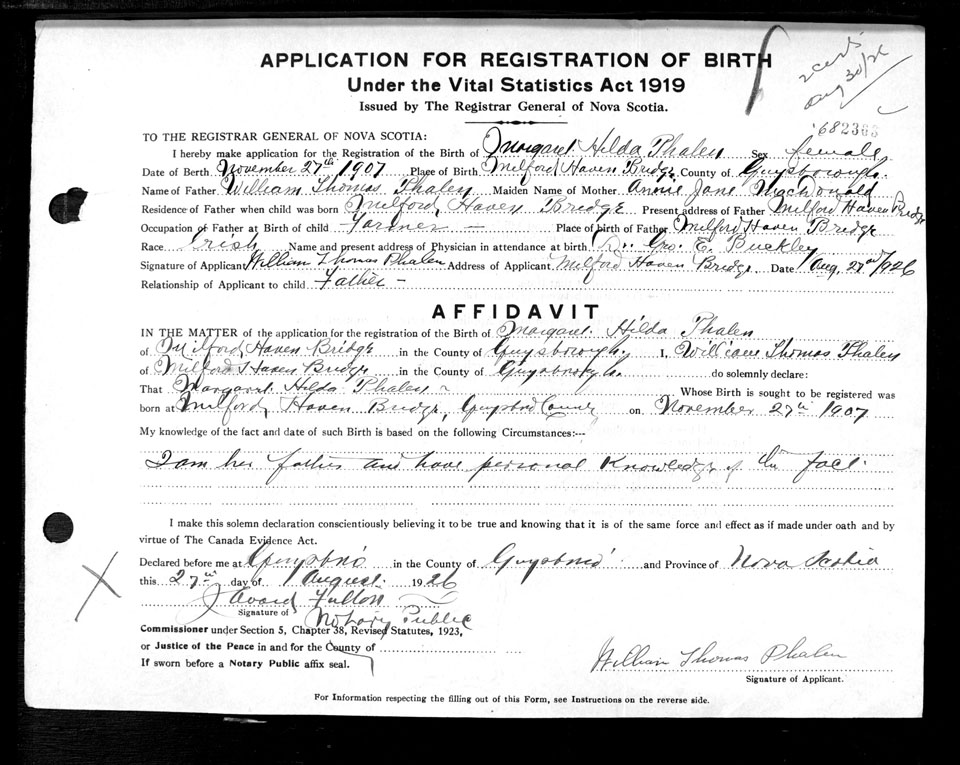 2 certs
Aug 30/26
APPLICATION FOR REGISTRATION OF BIRTH
Under the Vital Statistics Act 1919
Issued by The Registrar General of Nova Scotia.
682363
TO THE REGISTRAR GENERAL OF NOVA SCOTIA:
I hereby make application for the Registration of the Birth of Margaret Hilda Phalen Sex female
Date of Berth November 27th 1907 Place of Birth Milford Haven Bridge County of Guysborough
Name of Father William Thomas Phalen Maiden Name of Mother Annie Jane MacDonald
Residence of Father when child was born Milford Haven Bridge Present address of Father Milford Haven Bridge
Occupation of Father at Birth of child Farmer — Place of birth of Father Milford Haven Bridge
Race Irish Name and present address of Physician in attendance at birth Dr. Geo. E. Buckley
Signature of Applicant William Thomas Phalen Address of Applicant Milford Haven Bridge Date Aug. 27th 1926
Relationship of Applicant to child Father —
AFFIDAVIT
IN THE MATTER of the application for the registration of the Birth of Margaret Hilda Phalen
of Milford Haven Bridge in the County of Guysborough. I, William Thomas Phalen
of Milford Haven Bridge in the County of Guysborough do solemnly declare:
That Margaret Hilda Phalen Whose Birth is sought to be registered was
born at Milford Haven Bridge, Guysboro County on November 27th 1907
My knowledge of the fact and date of such Birth is based on the following Circumstances:--
I am her father and have personal Knowledge of the fact.
I make this solemn declaration conscientiously believing it to be true and knowing that it is of the same force and effect as if made under oath and by
virtue of The Canada Evidence Act.
Declared before me at Guysboro in the County of Guysboro and Province of Nova Scotia
this 27th day of August 1926
Fulton
Signature of Notary Public
Commissioner under Section 5, Chapter 38, Revised Statutes, 1923,
or Justice of the Peace in and for the County of
If sworn before a Notary Public affix seal.
William Thomas Phalen
Signature of Applicant.
For Information respecting the filling out of this Form, see Instructions on the reverse side.